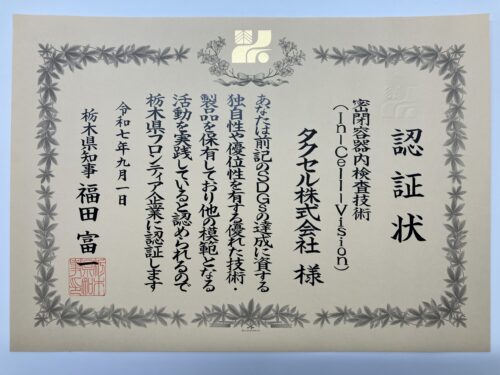 認証状
密閉容器内検査技術
(In-Cell-Vision)
タクセル株式会社 様
あなたは前記のSDGsの達成に資する
独自性や優位性を有する優れた技術・
製品を保有しており他の模範となる
活動を実践していると認められるので
栃木県フロンティア企業に認証します
令和七年九月一日
栃木県知事 福田富一